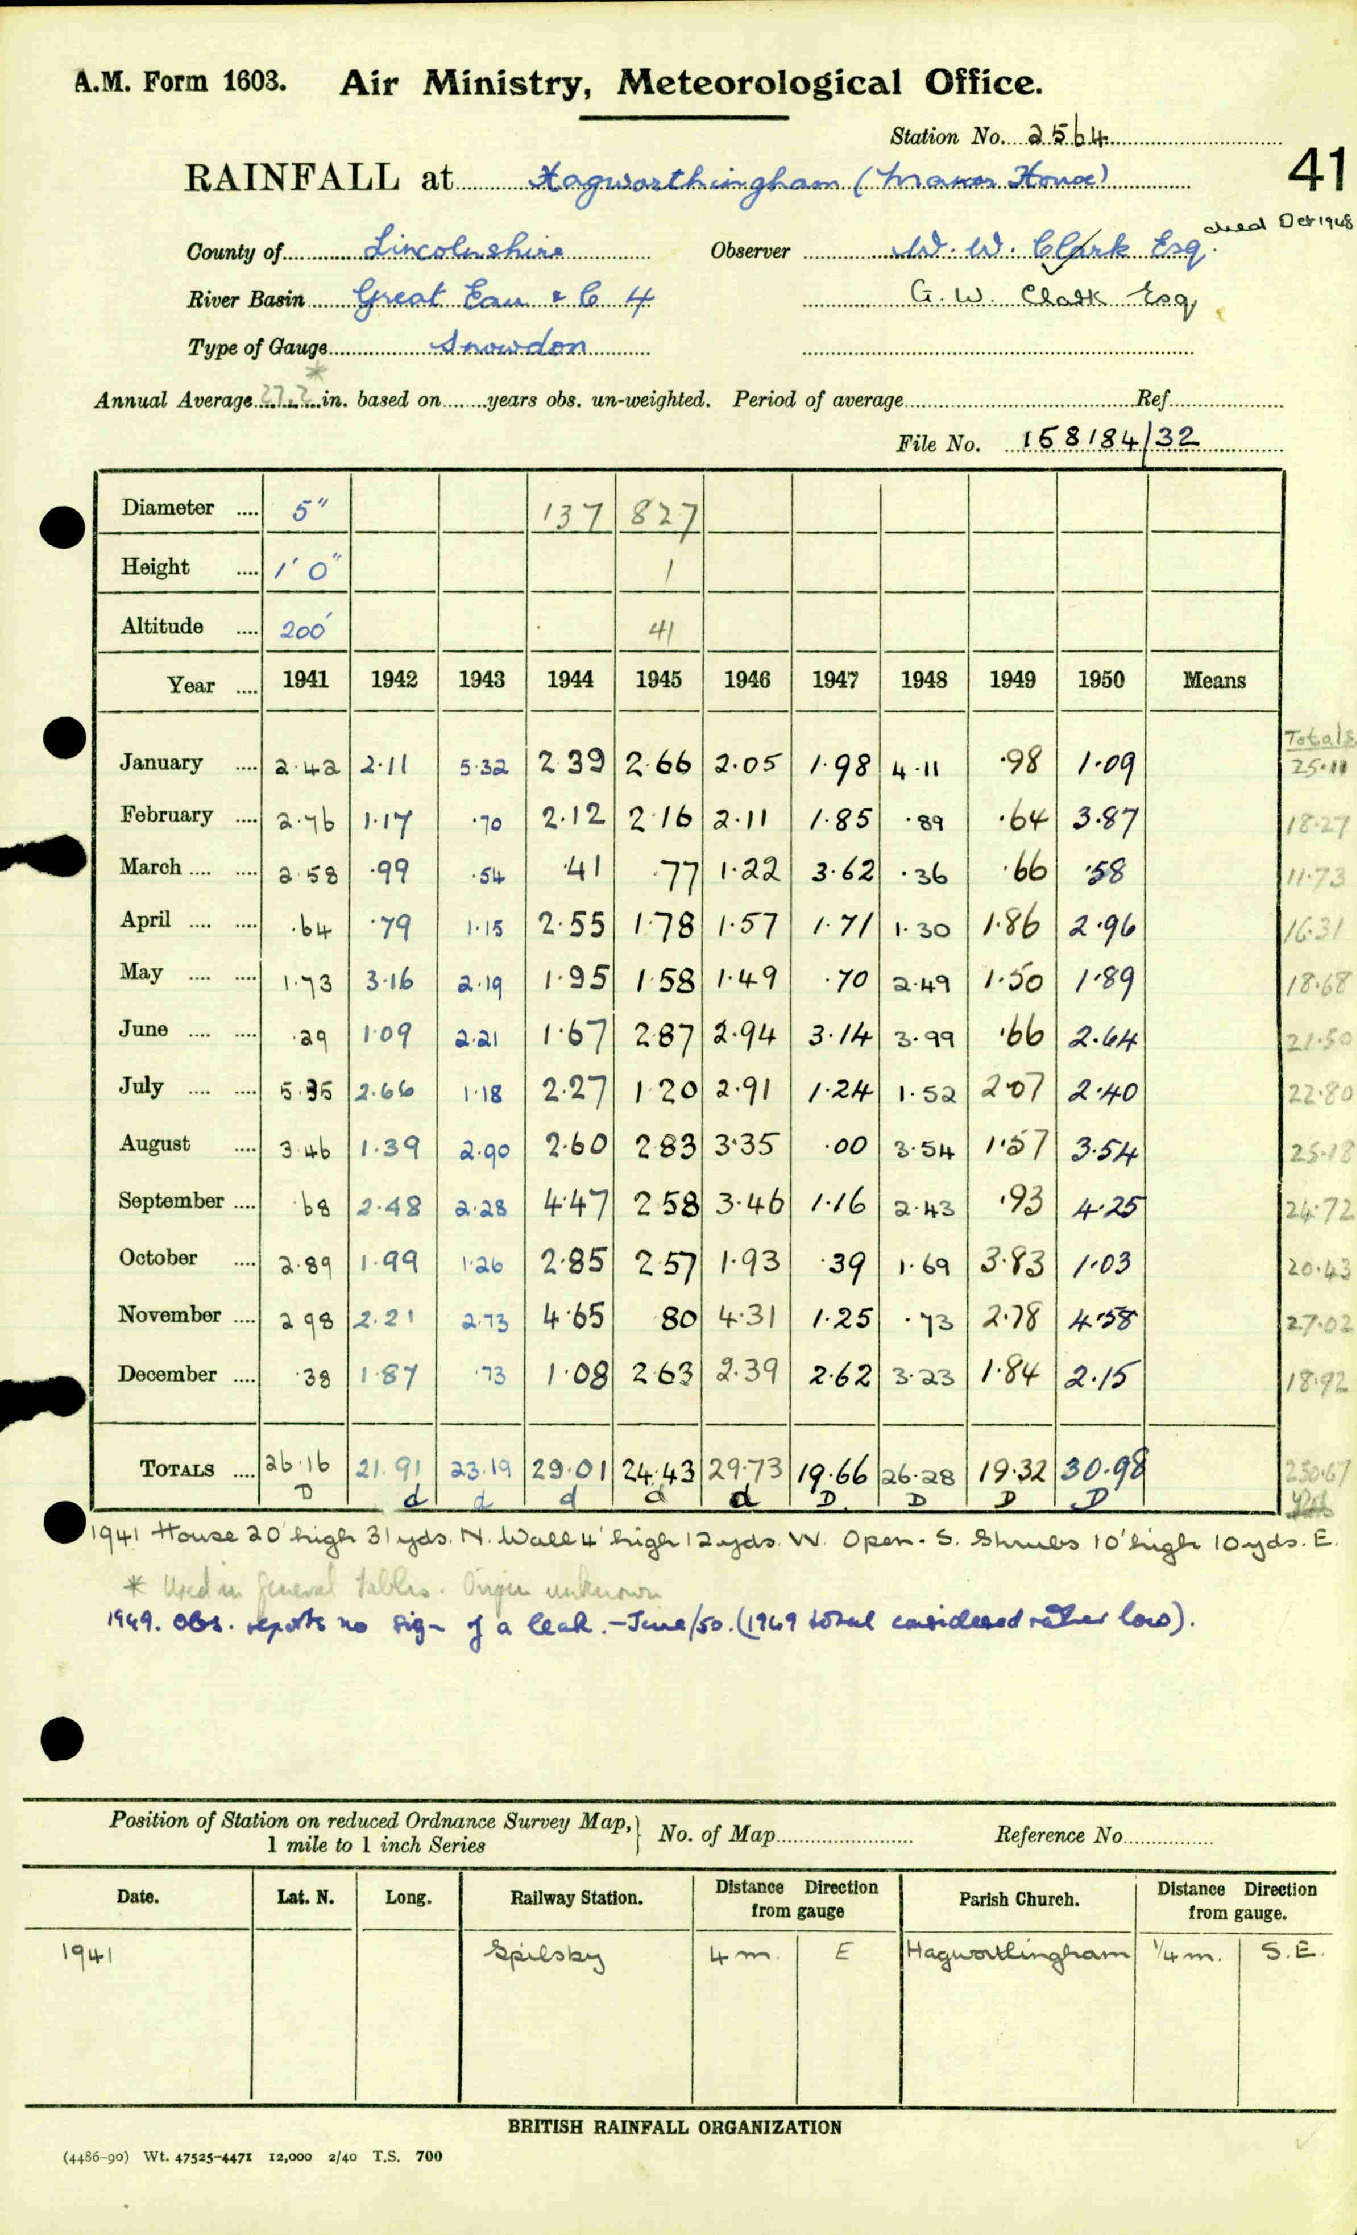 A.M. Form 1603. Air Ministry, Meteorological Office.
Station No. 2564
41
RAINFALL at Hagworthingham (Manor House)
died Oct 1948
County of Lincolnshire Observer W. W. Clark Esq.
River Basin Great Eau & C 4 G. W. Clark Esq
Type of Gauge Snowdon
Annual Average 27.2* in. based on years obs. un-weighted. Period of average Ref
File No. 158184/32
Diameter .... 5" 137 827
Height .... 1' 0" 1
Altitude .... 200' 41
Year .... 1941 1942 1943 1944 1945 1946 1947 1948 1949 1950 Means
Totals
January .... 2.42 2.11 5.32 2.39 2.66 2.05 1.98 4.11 .98 1.09 25.11
February .... 2.76 1.17 .70 2.12 2.16 2.11 1.85 .89 .64 3.87 18.27
March .... .... 2.58 .99 .54 .41 .77 1.22 3.62 .36 .66 .58 11.73
April .... .... .64 .79 1.15 2.55 1.78 1.57 1.71 1.30 1.86 2.96 16.31
May .... .... 1.73 3.16 2.19 1.95 1.58 1.49 .70 2.49 1.50 1.89 18.68
June .... .... .29 1.09 2.21 1.67 2.87 2.94 3.14 3.99 .66 2.64 21.50
July .... .... 5.35 2.66 1.18 2.27 1.20 2.91 1.24 1.52 2.07 2.40 22.80
August .... 3.46 1.39 2.90 2.60 2.83 3.35 .00 3.54 1.57 3.54 25.18
September .... .68 2.48 2.28 4.47 2.58 3.46 1.16 2.43 .93 4.25 24.72
October .... 2.89 1.99 1.26 2.85 2.57 1.93 .39 1.69 3.83 1.03 20.43
November .... 2.98 2.21 2.73 4.65 .80 4.31 1.25 .73 2.78 4.58 27.02
December .... .38 1.87 .73 1.08 2.63 2.39 2.62 3.23 1.84 2.15 18.92
TOTALS .... 26.16 21.91 23.19 29.01 24.43 29.73 19.66 26.28 19.32 30.98 250.67
D d d d d d D. D D D
1941 House 20' high 31 yds. N. Wall 4' high 12 yds. W. Open. S. Shrubs 10' high 10 yds. E.
* Used in General Tables. Origin unknown
1949. Obs. reports no sign of a leak. - June/50. (1949 total considered rather low).
Position of Station on reduced Ordnance Survey Map, } No. of Map Reference No
1 mile to 1 inch Series
Date. Lat. N. Long. Railway Station. Distance Direction from gauge Parish Church. Distance Direction from gauge.
1941 Spilsby 4 m. E Hagworthingham 1/4 m. S.E.
BRITISH RAINFALL ORGANIZATION
(4486-90) Wt. 47525-4471 12,000 2/40 T.S. 700